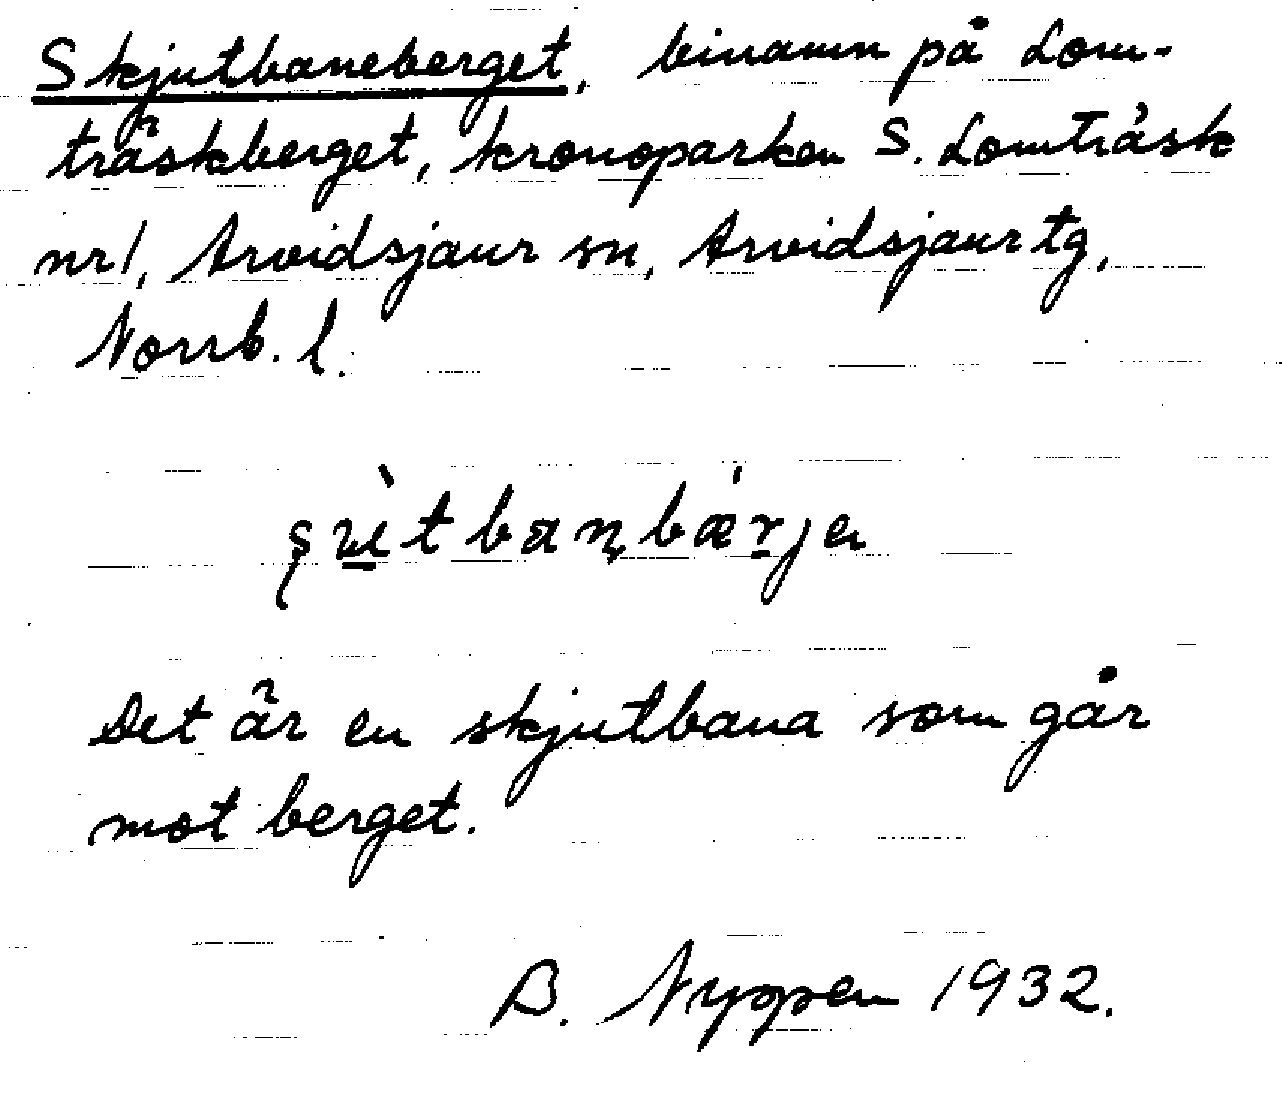 Skjutbaneberget, binamn på Lom-
träskberget, kronoparken S. Lomträsk
nr 1, Arvidsjaur sn, Arvidsjaur tg,
Norrb. l.
Det är en skjutbana som går
mot berget.
B. Nyppen 1932.